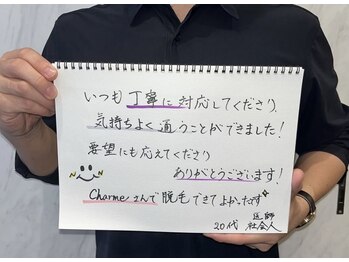 いつも丁寧に対応してくださり
気持ちよく通うことができました！
要望にも応えてくださり
ありがとうございます！
Charmeさんで脱毛できてよかったです
医師
20代 社会人